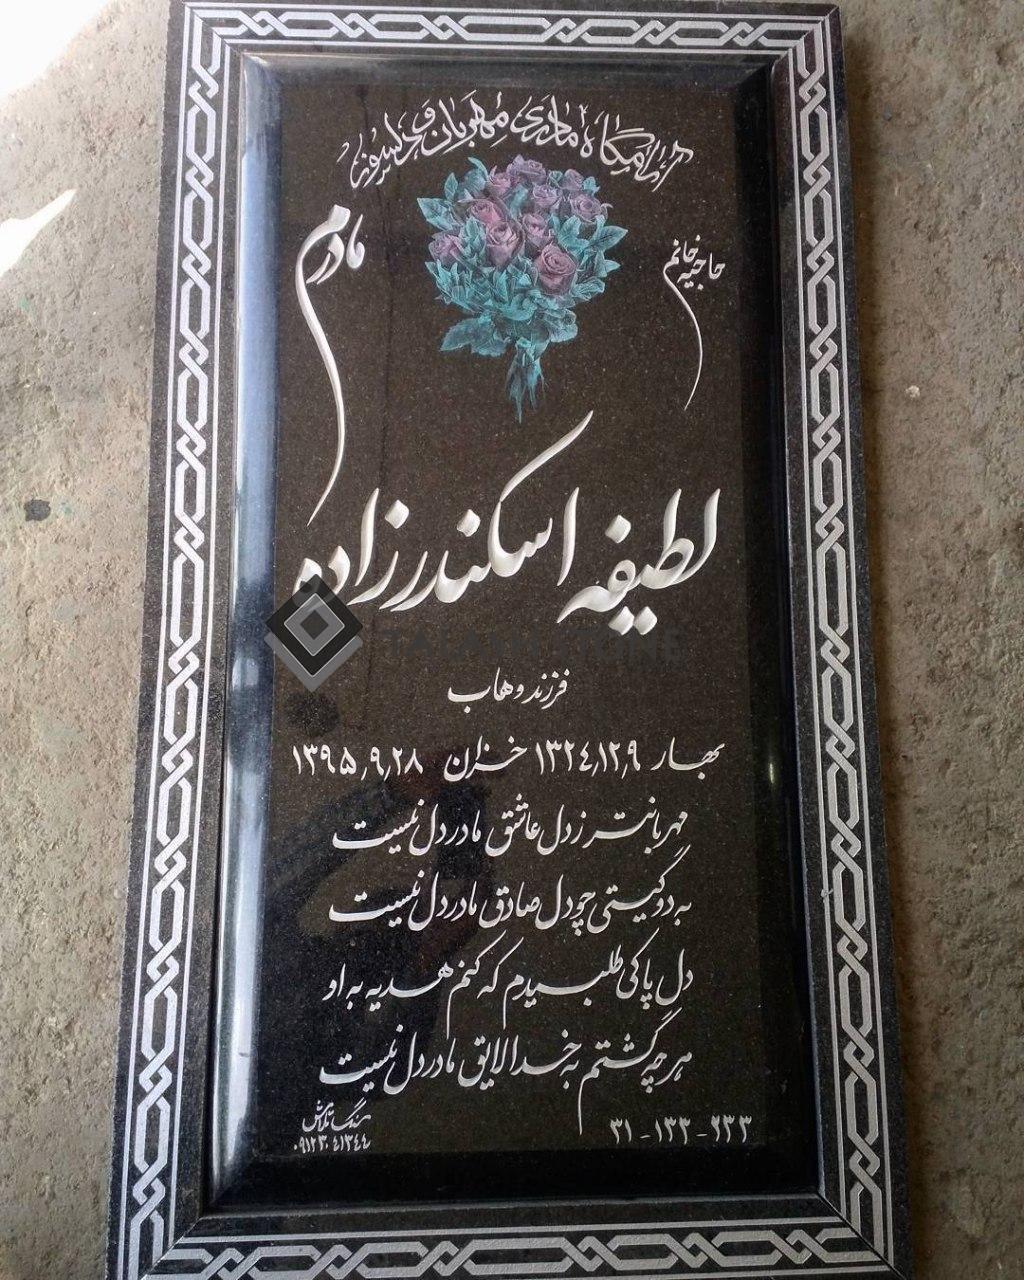 آرامگاه مادری مهربان و دلسوز
حاجیه خانم
مادرم
لطیفه اسکندرزاده
TALASH STONE
فرزند وهاب
بهار ۱۳۲٤٫۱۲٫۹ خزان ۱۳۹۵٫۹٫۲۸
مهربانتر ز دل عاشق مادر دل نیست
به دو گیتی چو دل صادق مادر دل نیست
دل پاکی طلبیدم که کنم هدیه به او
هر چه گشتم به خدا لایق مادر دل نیست
۳۱-۱۳۳-۶۳۳
سنگ تلاش
۰۹۱۲۳۰٤۱۳٤٤